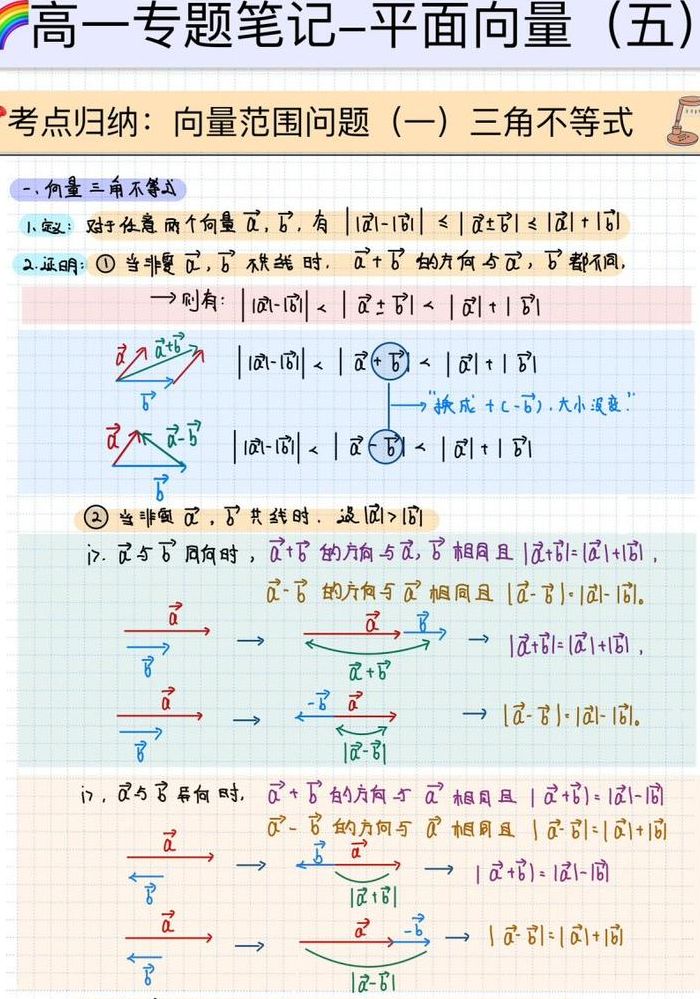 高一专题笔记-平面向量（五）
考点归纳：向量范围问题（一）三角不等式
一、向量三角不等式
1.定义：对于任意两个向量 a⃗，b⃗，有 ||a⃗|-|b⃗|| ≤ |a⃗±b⃗| ≤ |a⃗|+|b⃗|
2.证明：① 当非零 a⃗，b⃗ 不共线时．a⃗+b⃗ 的方向与 a⃗，b⃗ 都不同，
→则有：||a⃗|-|b⃗|| < |a⃗±b⃗| < |a⃗|+|b⃗|
a⃗ a⃗+b⃗ b⃗ ||a⃗|-|b⃗|| < |a⃗+b⃗| < |a⃗|+|b⃗|
→"换成 +(-b⃗)．大小没变."
a⃗ a⃗-b⃗ b⃗ ||a⃗|-|b⃗|| < |a⃗-b⃗| < |a⃗|+|b⃗|
② 当非零 a⃗，b⃗ 共线时．设 |a⃗|>|b⃗|
i>. a⃗与b⃗ 同向时，a⃗+b⃗ 的方向与 a⃗，b⃗ 相同且 |a⃗+b⃗|=|a⃗|+|b⃗|，
a⃗-b⃗ 的方向与 a⃗ 相同且 |a⃗-b⃗|=|a⃗|-|b⃗|。
a⃗ b⃗ → a⃗ b⃗ a⃗+b⃗ → |a⃗+b⃗|=|a⃗|+|b⃗|，
a⃗ b⃗ → -b⃗ a⃗ |a⃗-b⃗| → |a⃗-b⃗|=|a⃗|-|b⃗|。
i>，a⃗与b⃗ 异向时．a⃗+b⃗ 的方向与 a⃗ 相同且 |a⃗+b⃗|=|a⃗|-|b⃗|
a⃗-b⃗ 的方向与 a⃗ 相同且 |a⃗-b⃗|=|a⃗|+|b⃗|
a⃗ b⃗ → b⃗ a⃗ |a⃗+b⃗| → |a⃗+b⃗|=|a⃗|-|b⃗|
a⃗ b⃗ → a⃗ -b⃗ |a⃗-b⃗| → |a⃗-b⃗|=|a⃗|+|b⃗|